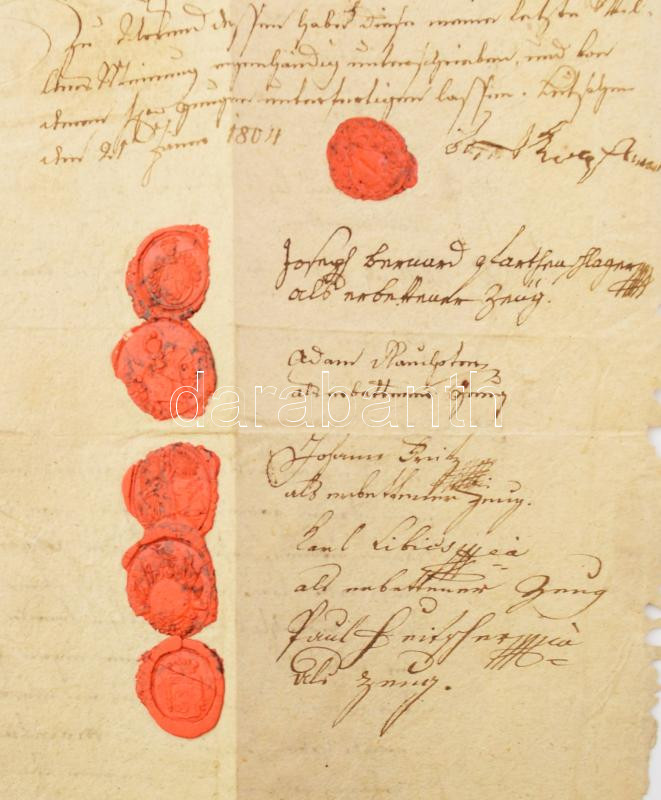 Zu Urkund dessen habe diese meine letzte Wil-
lens Meinung eigenhändig unterschrieben, und von
denen Zeugen unterfertigen lassen.
den 21ten Jänner 1804
Joseph Bernard
als erbettener Zeug.
Adam
als erbettener Zeug
Johann Fritz
als erbettener Zeug.
Karl Libics
als erbettener Zeug
Paul
als Zeug.
darabanth